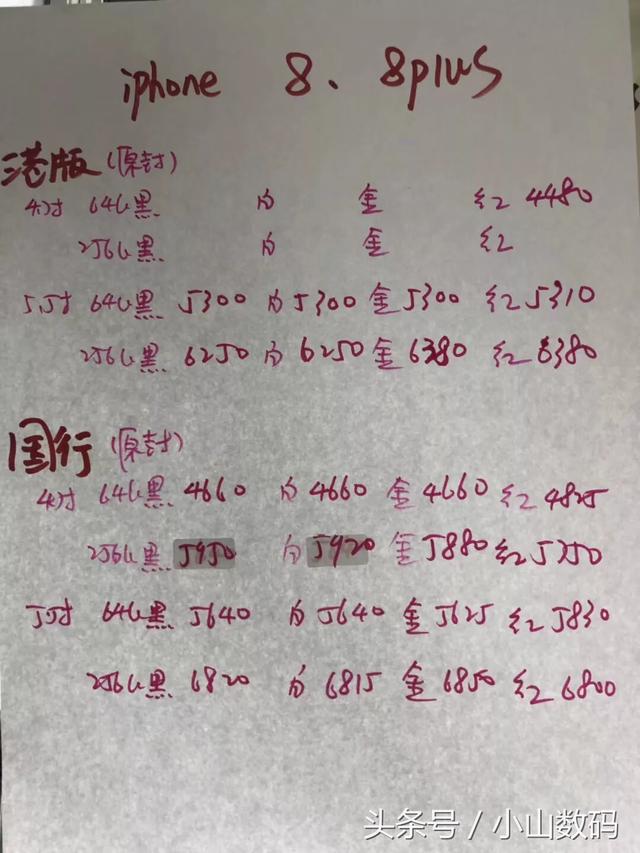 iphone 8、8plus
港版(原封)
4.7寸 64G黑 白 金 红4480
256G黑 白 金 红
5.5寸 64G黑 5300 白5300 金5300 红5310
256G黑 6250 白6250 金6380 红6380
国行(原封)
4.7寸 64G黑 4660 白4660 金4660 红4825
256G黑 5950 白5920 金5880 红5750
5.5寸 64G黑 5640 白5640 金5625 红5830
256G黑 6820 白6815 金6850 红6800
头条号 / 小山数码